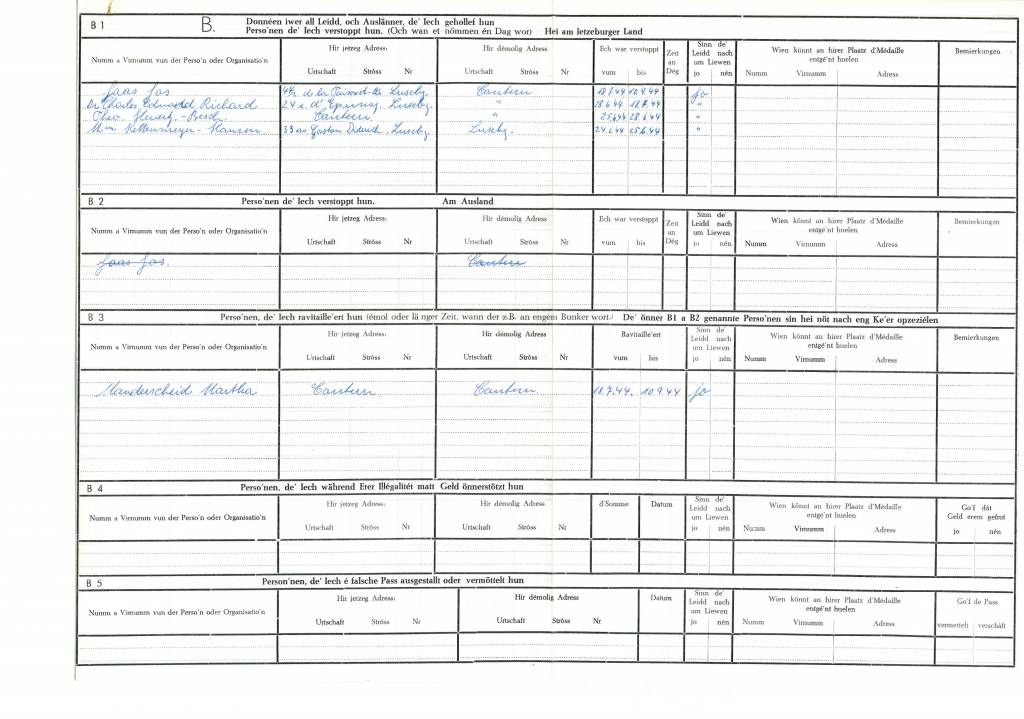 B 1 B. Donnéen iwer all Leidd, och Auslänner, de' Iech gehollef hun
Perso'nen de' Iech verstoppt hun. (Och wan et nömmen én Dag wor) Hei am letzeburger Land
Numm a Virnumm vun der Perso'n oder Organisatio'n Hir jetzeg Adress: Urtschaft Ströss Nr Hir démolig Adress Urtschaft Ströss Nr Ech war verstoppt vum bis Zeit an Dég Sinn de' Leidd nach um Liewen jo nén Wien könnt an hirer Plaatz d'Médaille entgé'nt huelen Numm Virnumm Adress Bemierkungen
Jaas Jos Luxbg. Cantern 18.7.44 10.9.44 jo
Dr Charles Edouard Richard 24 r. d'Epernay, Luxbg. " 28.6.44 18.7.44 "
Cantern. 25.6.44 28.6.44 "
Mm Kettenmeyer-Hansen 33 av Gaston Diderich, Luxbg Luxbg. 24.6.44 25.6.44 "
B 2 Perso'nen de' Iech verstoppt hun. Am Ausland
Numm a Virnumm vun der Perso'n oder Organisatio'n Hir jetzeg Adress: Urtschaft Ströss Nr Hir démolig Adress Urtschaft Ströss Nr Ech war verstoppt vum bis Zeit an Dég Sinn de' Leidd nach um Liewen jo nén Wien könnt an hirer Plaatz d'Médaille entgé'nt huelen Numm Virnumm Adress Bemierkungen
Jaas Jos. Cantern
B 3 Perso'nen, de' Iech ravitaille'ert hun (émol oder lä nger Zeit, wann der z.B. an engem Bunker wort.) De' önner B1 a B2 genannte Perso'nen sin hei nöt nach eng Ke'er opzeziélen
Numm a Virnumm vun der Perso'n oder Organisatio'n Hir jetzeg Adress: Urtschaft Ströss Nr Hir démolig Adress Urtschaft Ströss Nr Ravitaille'ert vum bis Sinn de' Leidd nach um Liewen jo nén Wien könnt an hirer Plaatz d'Médaille entgé'nt huelen Numm Virnumm Adress Bemierkungen
Manderscheid Martha Cantern. Cantern. 18.7.44. 10.9.44 jo
B 4 Perso'nen, de' Iech während Erer Illégalitét matt Geld önnerstötzt hun
Numm a Virnumm vun der Perso'n oder Organisatio'n Hir jetzeg Adress: Urtschaft Ströss Nr Hir démolig Adress Urtschaft Ströss Nr d'Somme Datum Sinn de' Leidd nach um Liewen jo nén Wien könnt an hirer Plaatz d'Médaille entgé'nt huelen Numm Virnumm Adress Go'f dât Geld erem gefrot jo nén
B 5 Person'nen, de' Iech é falsche Pass ausgestallt oder vermöttelt hun
Numm a Virnumm vun der Perso'n oder Organisatio'n Hir jetzeg Adress: Urtschaft Ströss Nr Hir démolig Adress: Urtschaft Ströss Nr Datum Sinn de' Leidd nach um Liewen jo nén Wien könnt an hirer Plaatz d'Médaille entgé'nt huelen Numm Virnumm Adress Go'f de Pass vermettelt verschâft